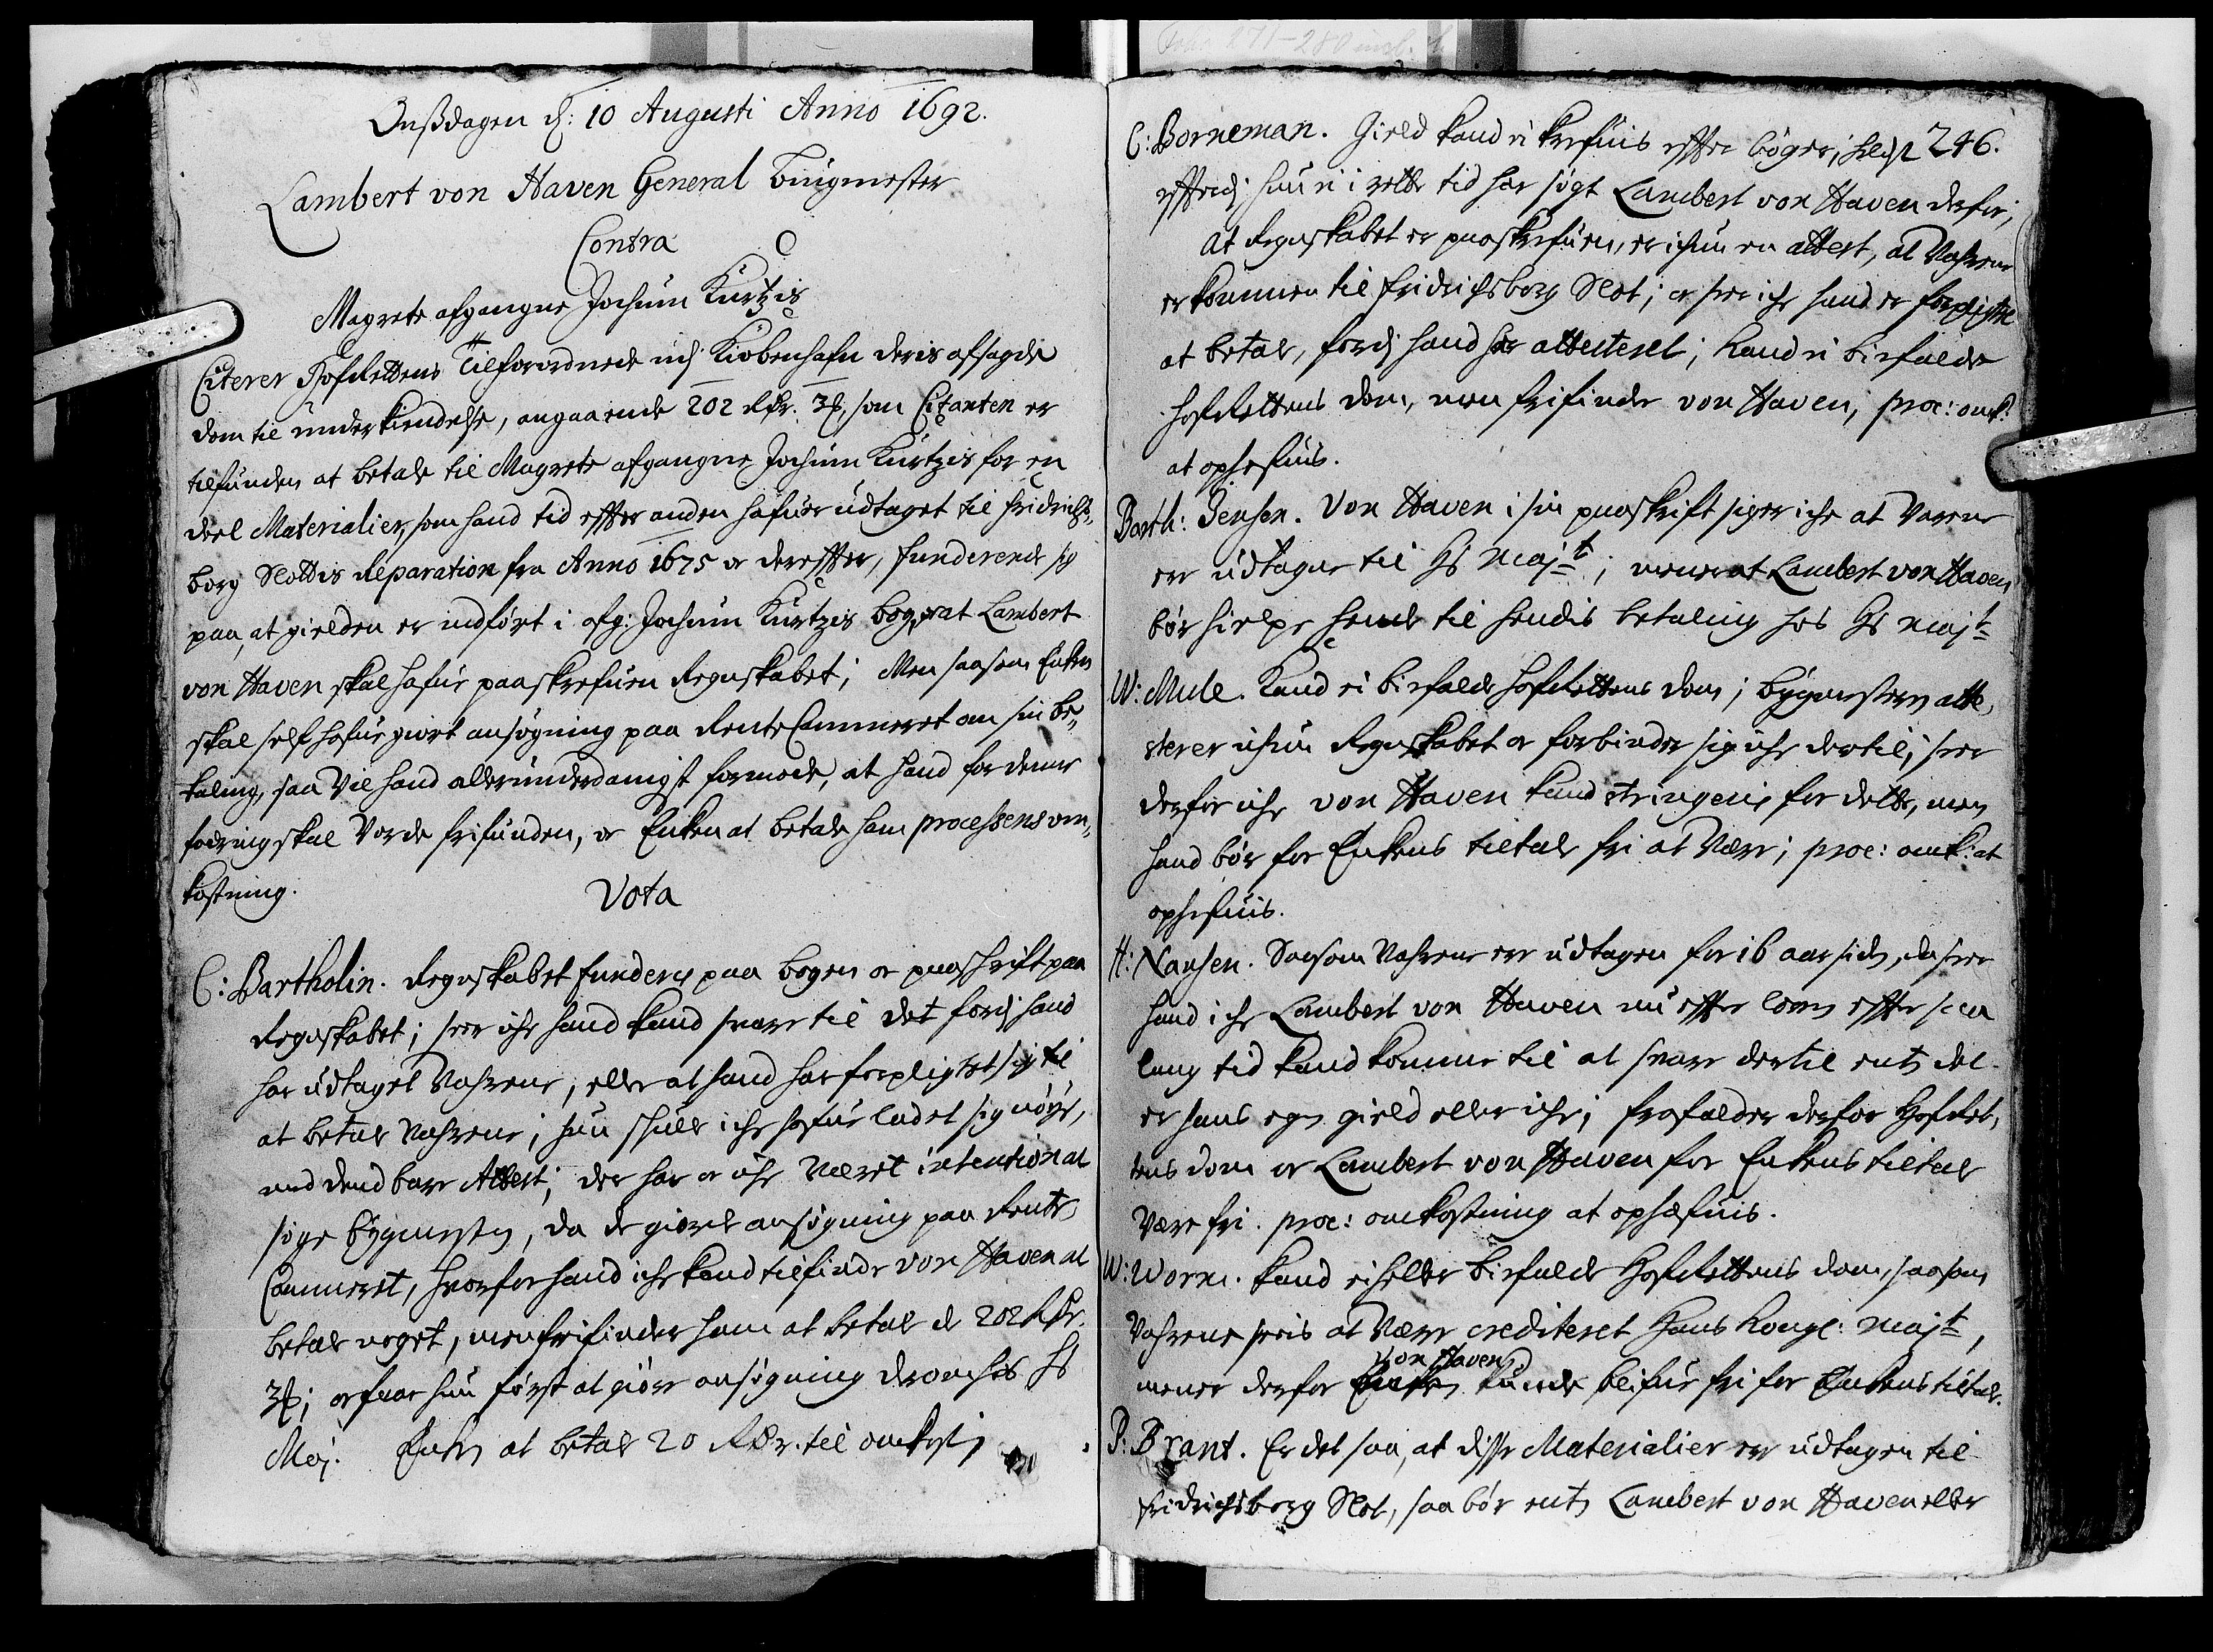 Onsdagen d: 10 Augusti Anno 1692.
Lambert von Haven General Bugmester
Contra
Magrete afgangne Jochum Kurtzis
Citerer HofRettens Tilforordnede udj Kiøbenhafn deris afsagde
dom til underkiendelse, angaaende 202 Rdr. 3ß, som Citanten er
tilfunden at betale til Magrete afgangne Jochum Kurtzis for en
deel Materialier, som hand tid effter anden hafuer udtaget til Fridrichs-
borg Slottis Reparation fra Anno 1675 oc dereffter, funderende sig
paa, at gielden er indført i afg: Jochum Kurtzis bog, oc at Lambert
von Haven skal hafue paaskrefuen Regnskabet; Men saasom Enken
skal self hafue giort ansøgning paa RenteCammeret om sin be-
taling, saa vil hand allerunderdanigst formode, at hand for denne
fodring skal vorde frifunden, oc Enken at betale ham processens om-
kostning.
Vota
C: Bartholin. Regnskabet funderes paa bogen oc paaschrifft paa
Regnskabet; seer iche hand kand svare til det fordj hand
har udtaget Vahrene, eller at hand har forpligtet sig til
at betale Vahrene; hun skulle iche hafue ladet sig nøye,
med dend bare Attest; der har oc iche været intention at
søge bygmesten, da de giorde ansøgning paa Rente-
Cammeret, hvorfor hand iche kand tilfinde von Haven at
betale noget, men frifinder ham at betale de 202 Rdr.
3ß; oc faar hun først at giøre ansøgning derom hos Hs
Maj. Enken at betale 20 Rdr. til omkost;
246.
C: Borneman. Gield kand ei krefuis effter bøger,
effterdj hun ei i rette tid har søgt Lambert von Haven derfor;
at Regnskabet er paaskrefuen, er ichun en attest, at Vahrene
er kommen til Fridrichsborg Slot; oc seer iche hand er forpligtet
at betale, fordj hand har attesteret; Kand ei bifalde
HofRettens dom, men frifinde von Haven; proc: omk:
at ophefuis.
Barth: Jensen. Von Haven i sin paaskrift siger iche at Varene
ere udtagne til Hs Majt; mener at Lambert von Haven
bør hielpe hende til hendis betaling hos Hs Majt
W: Mule. Kand ei bifalde HofRettens dom; bygmesteren atte-
sterer ichun Regnskabet oc forbinder sig iche dertil; seer
derfor iche von Haven kand stringeris for dette, men
hand bør for Enkens tiltale fri at være; proc: omk: at
ophefuis.
H: Nansen. Saasom Vahrene ere udtagen for 16 aar siden, da seer
hand iche Lambert von Haven nu effter loven effter saa
lang tid kand komme til at svare dertil enten det
er hans egen gield eller iche; frafalder derfor HofRet-
tens dom oc Lambert von Haven for Enkens tiltale
være fri. proc: omkostning at ophæfuis.
W: Worm. Kand ei heller bifalde HofRettens dom, saasom
Vahrene sees at være crediteret Hans Kongl: Majt,
von Haven
mener derfor kunde blifue fri for Enkens tiltale.
P: Brant. Er det saa, at disse Materialier ere udtagen til
Fridrichsborg Slot, saa bør enten Lambert von Haven eller